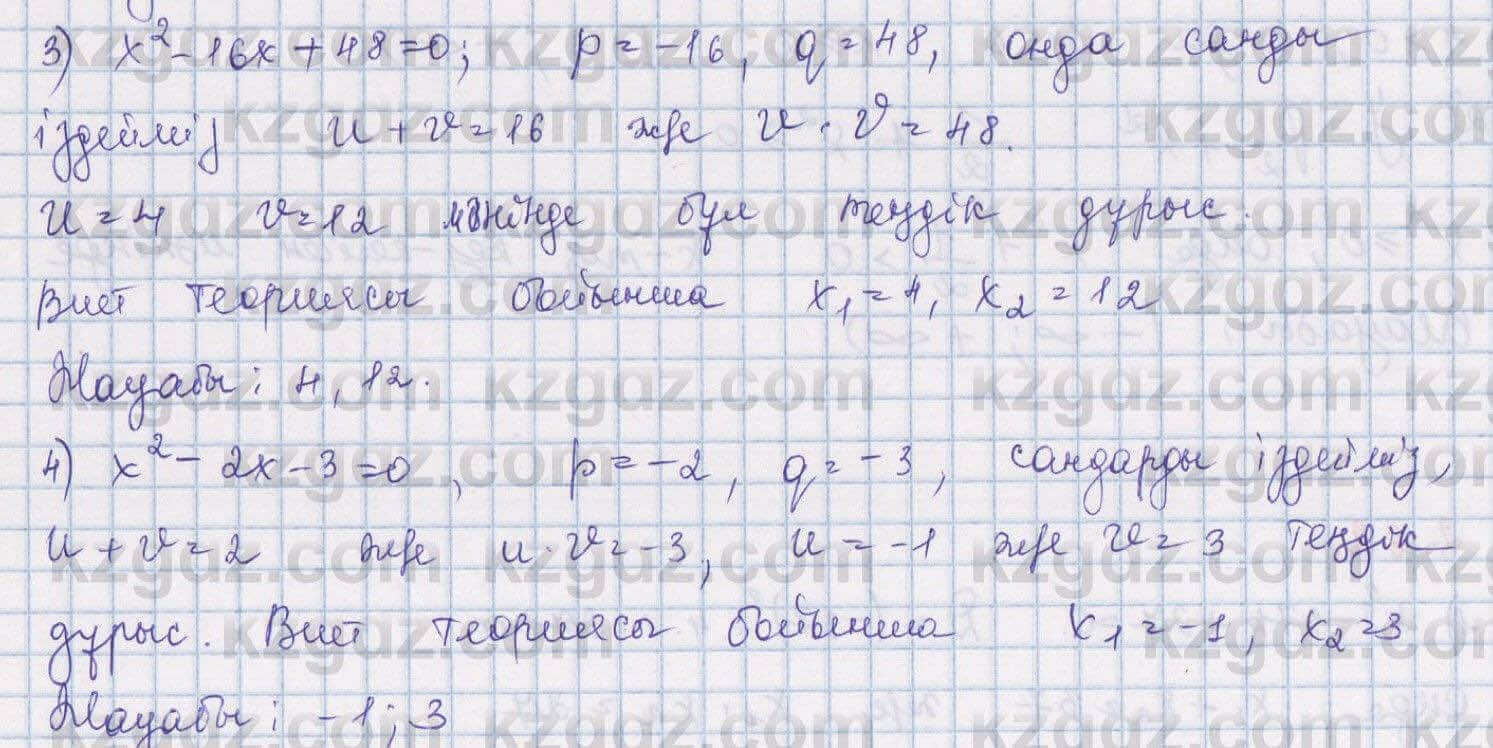 3) x² - 16x + 48 = 0; p = -16, q = 48, онда санды
іздейміз u + v = 16 және u · v = 48.
u = 4 v = 12 мәнінде бұл теңдік дұрыс.
Виет теориясы бойынша x₁ = 4, x₂ = 12
Жауабы: 4, 12.
4) x² - 2x - 3 = 0, p = -2, q = -3, сандарды іздейміз,
u + v = 2 және u · v = -3, u = -1 және v = 3 теңдік
дұрыс. Виет теориясы бойынша x₁ = -1, x₂ = 3
Жауабы: -1; 3